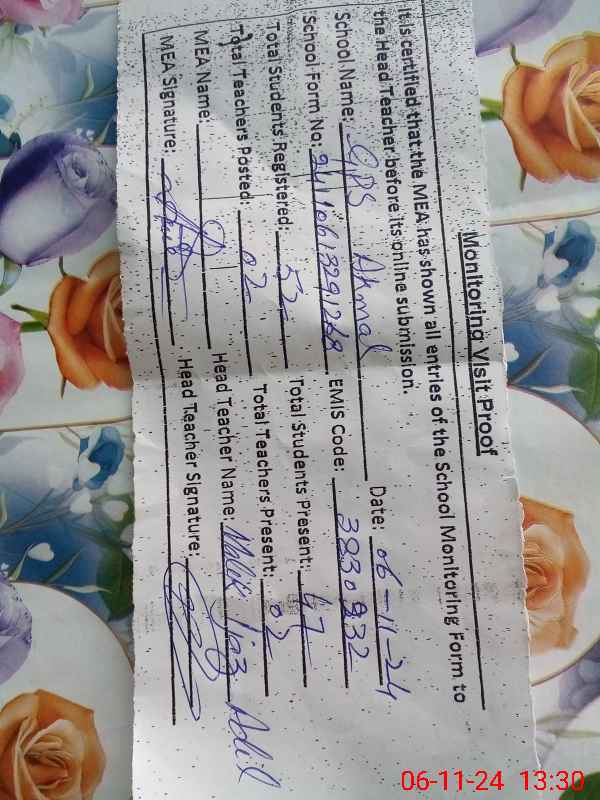 Monitoring Visit Proof
It is certified that the MEA has shown all entries of the School Monitoring Form to
the Head Teacher before its online submission.
School Name: GPS Akmal Date: 06-11-24
School Form No: EMIS Code: 3830932
Total Students Registered: 52 Total Students Present: 47
Total Teachers Posted: 02 Total Teachers Present: 02
MEA Name: Head Teacher Name: Malik Ijaz Adil
MEA Signature: Head Teacher Signature:
06-11-24 13:30